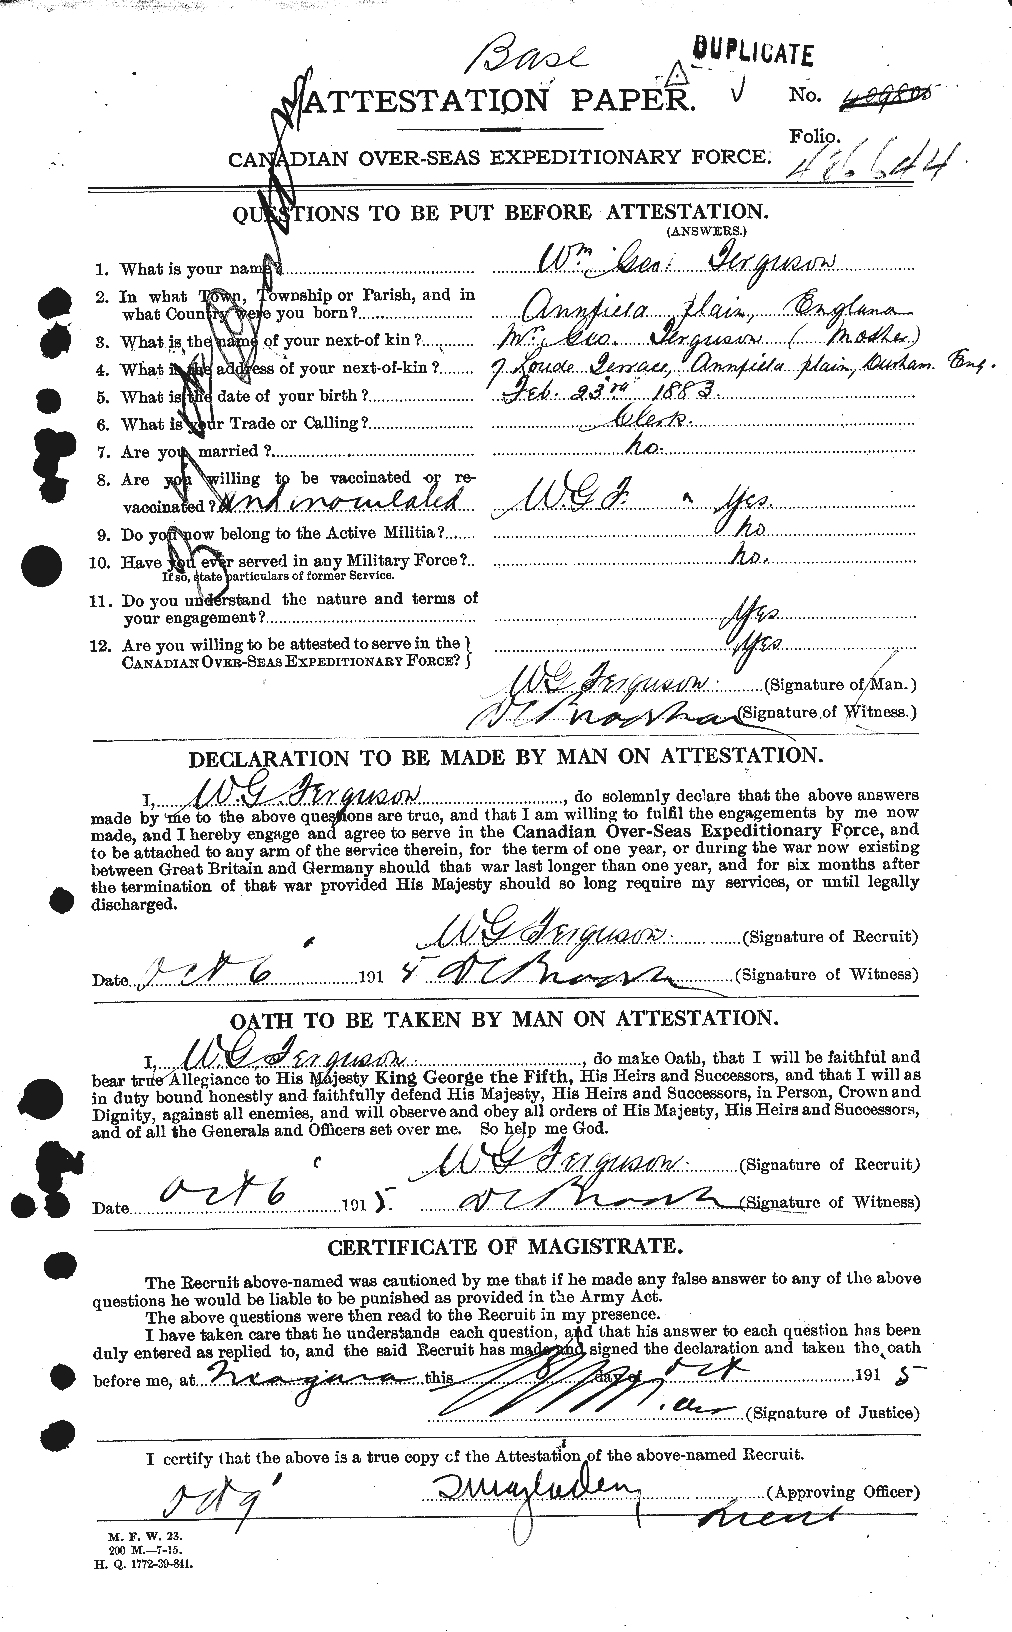 Base
DUPLICATE
ATTESTATION PAPER.
No. 409805
Folio.
CANADIAN OVER-SEAS EXPEDITIONARY FORCE.
QUESTIONS TO BE PUT BEFORE ATTESTATION.
(ANSWERS.)
1. What is your name? Wm Geo. Ferguson
2. In what Town, Township or Parish, and in
what Country were you born? Annfield plain, England
3. What is the name of your next-of kin? Mrs Geo. Ferguson (Mother)
4. What is the address of your next-of-kin? 7 Loude Terrace, Annfield plain, Durham. Eng.
5. What is the date of your birth? Feb. 23rd 1883.
6. What is your Trade or Calling? Clerk.
7. Are you married? no.
8. Are you willing to be vaccinated or re-
vaccinated? and inoculated W.G.F. Yes.
9. Do you now belong to the Active Militia? no
10. Have you ever served in any Military Force? no.
If so, state particulars of former Service.
11. Do you understand the nature and terms of
your engagement? Yes
12. Are you willing to be attested to serve in the } Yes
CANADIAN OVER-SEAS EXPEDITIONARY FORCE? }
W G Ferguson. (Signature of Man.)
(Signature of Witness.)
DECLARATION TO BE MADE BY MAN ON ATTESTATION.
I, W.G Ferguson, do solemnly declare that the above answers
made by me to the above questions are true, and that I am willing to fulfil the engagements by me now
made, and I hereby engage and agree to serve in the Canadian Over-Seas Expeditionary Force, and
to be attached to any arm of the service therein, for the term of one year, or during the war now existing
between Great Britain and Germany should that war last longer than one year, and for six months after
the termination of that war provided His Majesty should so long require my services, or until legally
discharged.
W G Ferguson. (Signature of Recruit)
Date Oct 6 1915 (Signature of Witness)
OATH TO BE TAKEN BY MAN ON ATTESTATION.
I, W.G Ferguson, do make Oath, that I will be faithful and
bear true Allegiance to His Majesty King George the Fifth, His Heirs and Successors, and that I will as
in duty bound honestly and faithfully defend His Majesty, His Heirs and Successors, in Person, Crown and
Dignity, against all enemies, and will observe and obey all orders of His Majesty, His Heirs and Successors,
and of all the Generals and Officers set over me. So help me God.
W G Ferguson. (Signature of Recruit)
Date Oct 6 1915. (Signature of Witness)
CERTIFICATE OF MAGISTRATE.
The Recruit above-named was cautioned by me that if he made any false answer to any of the above
questions he would be liable to be punished as provided in the Army Act.
The above questions were then read to the Recruit in my presence.
I have taken care that he understands each question, and that his answer to each question has been
duly entered as replied to, and the said Recruit has made and signed the declaration and taken the oath
before me, at Niagara this day of Oct 1915
(Signature of Justice)
I certify that the above is a true copy of the Attestation of the above-named Recruit.
Oct 9 (Approving Officer)
M. F. W. 23.
200 M.—7-15.
H. Q. 1772-39-841.